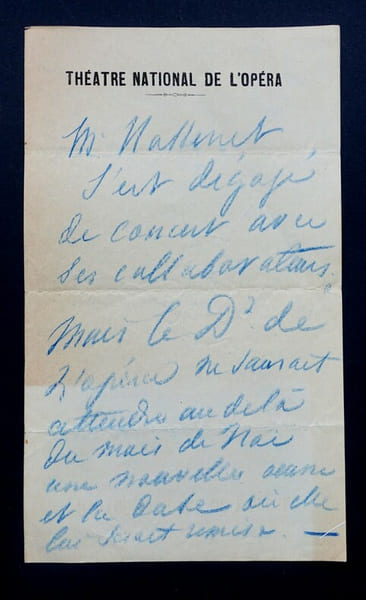 THÉATRE NATIONAL DE L'OPÉRA
Mr Massenet
s'est dégagé,
de concert avec
ses collaborateurs.
Mais le Dr de
l'opéra ne saurait
attendre au delà
du mois de Mai
une nouvelle
et la date où elle
lui serait remise. —